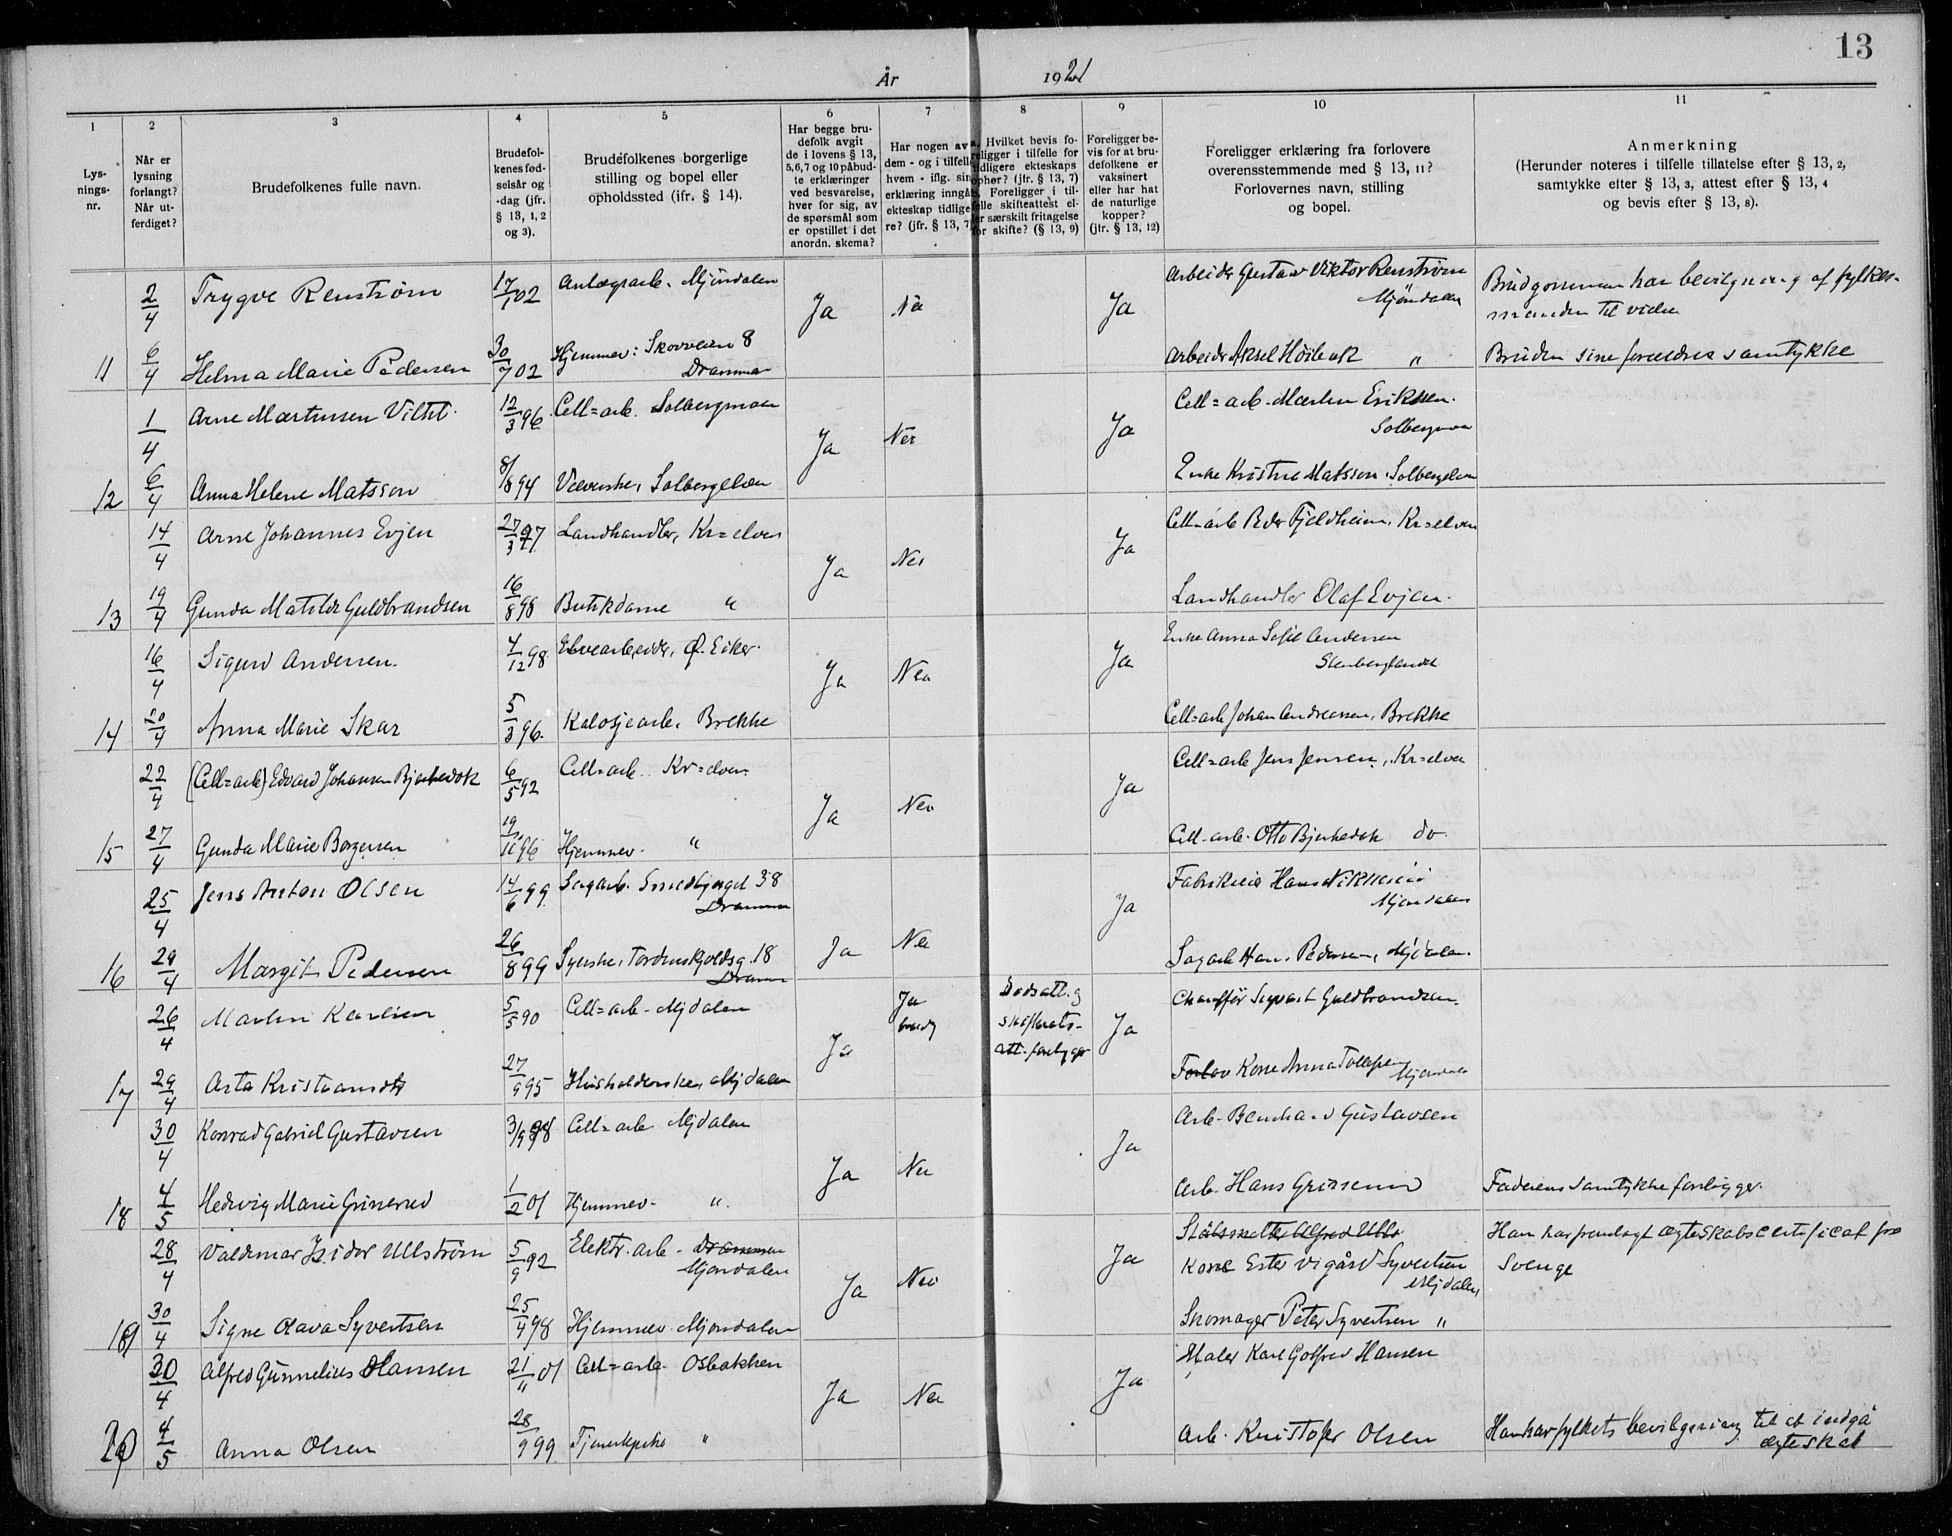 13
År 1921
1 2 3 4 5 6 7 8 9 10 11
Lys-
nings-
nr.
Når er
lysning
forlangt?
Når ut-
ferdiget?
Brudefolkenes fulle navn.
Brudefol-
kenes fød-
selsår og
-dag (jfr.
§ 13, 1, 2
og 3).
Brudefolkenes borgerlige
stilling og bopel eller
opholdssted (jfr. § 14).
Har begge bru-
defolk avgit
de i lovens § 13,
5,6,7 og 10 påbud-
te erklæringer
ved besvarelse,
hver for sig, av
de spørsmål som
er opstillet i det
anordn. skema?
Har nogen av
dem - og i tilfelle
hvem - iflg. sin
erklæring inngått
ekteskap tidlige-
re? (jfr. § 13, 7)
Hvilket bevis fo-
religger i tilfelle for
tidligere ekteskaps
ophør? (jfr. § 13, 7)
Foreligger i til-
felle skifteattest el-
ler særskilt fritagelse
for skifte? (§ 13, 9)
Foreligger be-
vis for at bru-
defolkene er
vaksinert
eller har hat
de naturlige
kopper?
(jfr. § 13, 12)
Foreligger erklæring fra forlovere
overensstemmende med § 13, 11?
Forlovernes navn, stilling
og bopel.
Anmerkning
(Herunder noteres i tilfelle tillatelse efter § 13, 2,
samtykke efter § 13, 3, attest efter § 13, 4
og bevis efter § 13, 8).
2/4 Trygve Renstrøm 17/1 02 Anlægsarb. Mjøndalen Ja Nei Ja Arbeider Gustav Viktor Renstrøm
Mjøndalen
Brudgommen har bevilgning af fylkes-
manden til vielse
11 6/4 Helma Marie Pedersen 30/7 02 Hjemmev: Skovveien 8
Drammen
Arbeider Aksel " Bruden sine forældres samtykke
1/4 Arne Martinsen 12/3 96 Cell=arb. Solbergmoen Ja Nei Ja Cell=arb. Martin Eriksen.
Solbergmoen
12 6/4 Anna Helene Matsson 8/8 94 Væverske, Solbergelven Enke Kristine Matsson, Solbergelven
14/4 Arne Johannes Evjen 27/3 97 Landhandler, Kr=elven Ja Nei Ja Cell=arb Peder Fjeldheim, Kr=elven
13 19/4 Gunda Matilde Guldbrandsen 16/8 98 Butikdame " Landhandler Olaf Evjen.
16/4 Sigurd Andersen. 4/12 98 Elvearbeider, Ø. Eiker. Ja Nei Ja Enke Anna Sofie Andersen
14 20/4 Anna Marie Skar 5/3 96 Kalosjearb. Brekke Cell=arb Johan Andreassen, Brekke
22/4 (Cell=arb) Edvard Johansen Bjerkedok 6/5 92 Cell=arb. Kr=elven Ja Nei Ja Cell=arb Jens Jensen, Kr=elven
15 27/4 Gunda Marie Borgersen 19/11 96 Hjemmev. " Cell-arb. Otto Bjerkedok do.
25/4 Jens Anton Olsen 14/6 99 Sagarb. Smedbjerget 38
Drammen
Ja Nei Ja Hans
Mjøndalen
16 29/4 Margit Pedersen 26/8 99 Syerske, Tordenskjoldsg. 18
Drammen
Sagarb Hans Pedersen, Mjdalen
26/4 Martin Karlsen 5/5 90 Cell=arb - Mjdalen Ja Ja Dødsatt. og
skifterets-
att. foreligger
Ja Chauffør Sigvart Guldbrandsen.
17 29/4 Asta 27/9 95 Husholderske, Mjdalen Forlov Kone Anna Tollefsen
Mjøndalen
30/4 Konrad Gabriel Gustavsen 3/9 98 Cell=arb Mjdalen Ja Nei Ja Arb. Bernhard Gustavsen
18 4/5 Hedvig Marie Grinerud 1/2 01 Hjemmev. " Arb. Hans Faderens samtykke foreligger.
28/4 Valdemar Isidor Ullstrøm 5/9 92 Elektr. arb - Drammen
Mjøndalen
Ja Nei Ja
Kone Ester Vigård Syvertsen
Mjdalen
Han har fremlagt ægteskabscertificat fra
Sverige
19 30/4 Signe Olava Syvertsen 25/4 98 Hjemmev. Mjøndalen Skomager Peter Syvertsen "
30/4 Alfred Gunnelius Hansen 21/11 01 Cell=arb. Osbakken Ja Nei Ja Maler Karl Gotfred Hansen
20 4/5 Anna Olsen 28/9 99 Tjenestepike " Arb. Kristofer Olsen Han har fylkets bevilgning til at indgå
ægteskab